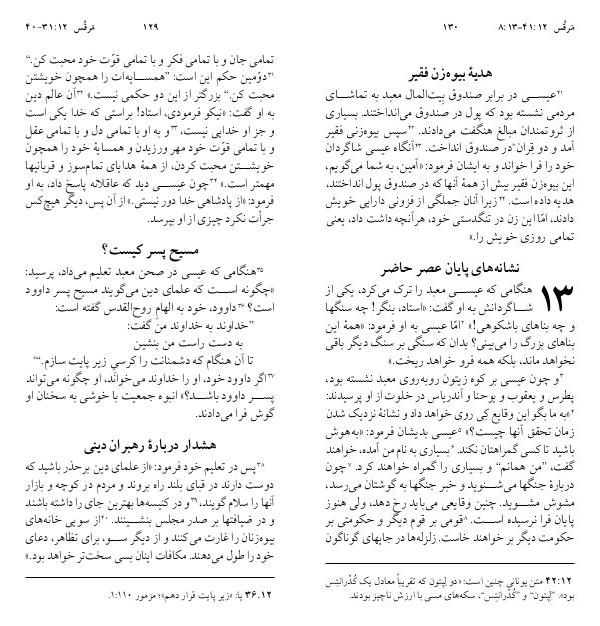 مَرقُس ۱۲:۳۱-۴۰ ۱۲۹
تمامی جان و با تمامی فکر و با تمامی قوّت خود محبت کن.“
۳۱دوّمین حکم این است: ”همسایه‌ات را همچون خویشتن
محبت کن.“ بزرگتر از این دو حکمی نیست.» ۳۲آن عالم دین
به او گفت: «نیکو فرمودی، استاد! براستی که خدا یکی است
و جز او خدایی نیست، ۳۳و به او با تمامی دل و با تمامی عقل
و با تمامی قوّت خود مهر ورزیدن و همسایهٔ خود را همچون
خویشتن محبت کردن، از همهٔ هدایای تمام‌سوز و قربانیها
مهمتر است.» ۳۴چون عیسی دید که عاقلانه پاسخ داد، به او
فرمود: «از پادشاهی خدا دور نیستی.» از آن پس، دیگر هیچ‌کس
جرأت نکرد چیزی از او بپرسد.
مسیح پسر کیست؟
۳۵هنگامی که عیسی در صحن معبد تعلیم می‌داد، پرسید:
«چگونه است که علمای دین می‌گویند مسیح پسر داوود
است؟ ۳۶داوود، خود به الهامِ روح‌القدس گفته است:
”خداوند به خداوند من گفت:
به دست راست من بنشین
تا آن هنگام که دشمنانت را کرسیِ زیر پایت سازم.“
۳۷اگر داوود خود، او را خداوند می‌خواند، او چگونه می‌تواند
پسر داوود باشد؟» انبوه جمعیت با خوشی به سخنان او
گوش فرا می‌دادند.
هشدار دربارهٔ رهبران دینی
۳۸پس در تعلیم خود فرمود: «از علمای دین برحذر باشید که
دوست دارند در قبای بلند راه بروند و مردم در کوچه و بازار
آنها را سلام گویند، ۳۹و در کنیسه‌ها بهترین جای را داشته باشند
و در ضیافتها بر صدر مجلس بنشینند. ۴۰از سویی خانه‌های
بیوه‌زنان را غارت می‌کنند و از دیگر سو، برای تظاهر، دعای
خود را طول می‌دهند. مکافات اینان بسی سخت‌تر خواهد بود.»
۳۶:۱۲ یا: «زیر پایت قرار دهم»؛ مزمور ۱:۱۱۰.
مَرقُس ۱۲:۴۱-۱۳:۸ ۱۳۰
هدیهٔ بیوه‌زن فقیر
۴۱عیسی در برابر صندوق بیت‌المال معبد به تماشای
مردمی نشسته بود که پول در صندوق می‌انداختند. بسیاری
از ثروتمندان مبالغ هنگفت می‌دادند. ۴۲سپس بیوه‌زنی فقیر
آمد و دو قِران در صندوق انداخت. ۴۳آنگاه عیسی شاگردان
خود را فرا خواند و به ایشان فرمود: «آمین، به شما می‌گویم،
این بیوه‌زن فقیر بیش از همهٔ آنها که در صندوق پول انداختند،
هدیه داده است. ۴۴زیرا آنان جملگی از فزونی دارایی خویش
دادند، امّا این زن در تنگدستی خود، هرآنچه داشت داد، یعنی
تمامی روزی خویش را.»
نشانه‌های پایان عصر حاضر
۱۳ هنگامی که عیسی معبد را ترک می‌کرد، یکی از
شاگردانش به او گفت: «استاد، بنگر! چه سنگها
و چه بناهای باشکوهی!» ۲امّا عیسی به او فرمود: «همهٔ این
بناهای بزرگ را می‌بینی؟ بدان که سنگی بر سنگ دیگر باقی
نخواهد ماند، بلکه همه فرو خواهد ریخت.»
۳و چون عیسی بر کوه زیتون روبه‌روی معبد نشسته بود،
پطرس و یعقوب و یوحنا و آندریاس در خلوت از او پرسیدند:
۴«به ما بگو این وقایع کِی روی خواهد داد و نشانهٔ نزدیک شدن
زمان تحقق آنها چیست؟» ۵عیسی بدیشان فرمود: «به‌هوش
باشید تا کسی گمراهتان نکند. ۶بسیاری به نام من آمده، خواهند
گفت، ”من همانم“ و بسیاری را گمراه خواهند کرد. ۷چون
دربارهٔ جنگها می‌شنوید و خبر جنگها به گوشتان می‌رسد،
مشوش مشوید. چنین وقایعی می‌باید رخ دهد، ولی هنوز
پایان فرا نرسیده است. ۸قومی بر قوم دیگر و حکومتی بر
حکومت دیگر بر خواهند خاست. زلزله‌ها در جایهای گوناگون
۴۲:۱۲ متن یونانی چنین است: «دو لِپتون که تقریباً معادل یک کُدْرانتِس
بود». ”لِپتون“ و ”کُدْرانتِس“، سکه‌های مسی با ارزش ناچیز بودند.